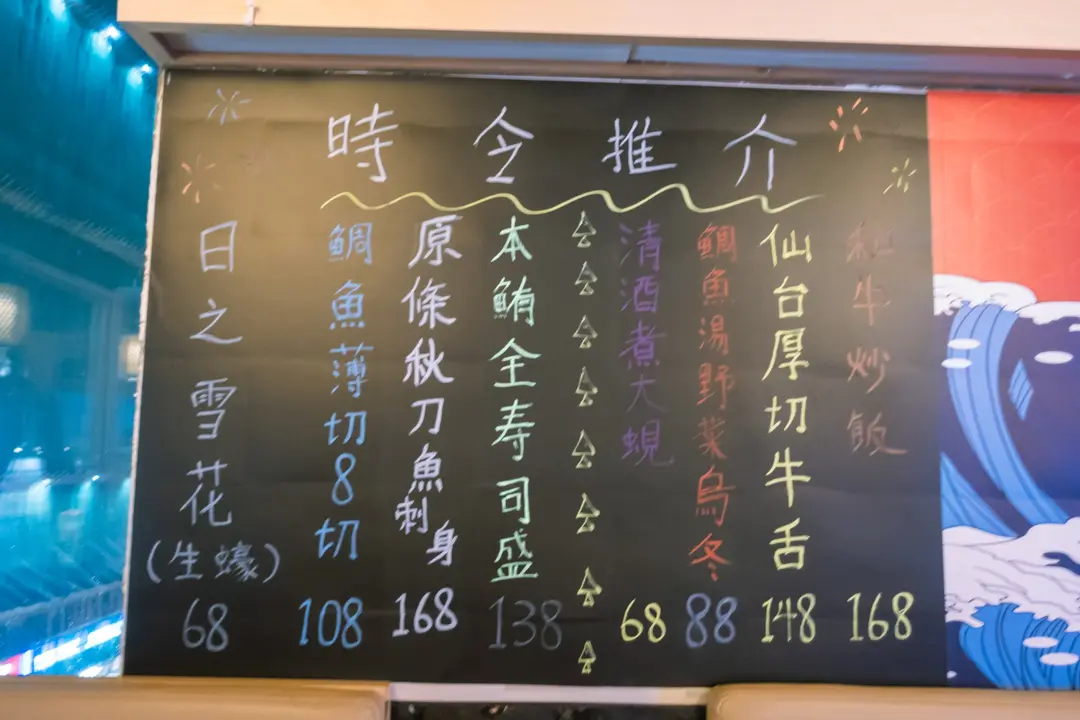 時令推介
日之雪花
(生蠔)
68
鯛魚薄切8切
108
原條秋刀魚刺身
168
本鮪全寿司盛
138
清酒煮大蜆
68
鯛魚湯野菜烏冬
88
仙台厚切牛舌
148
和牛炒飯
168